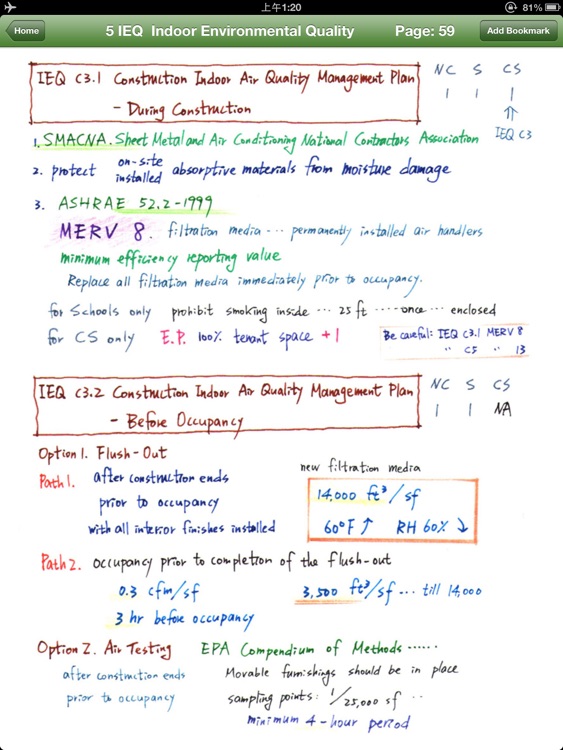 上午1:20
81%
Home
5 IEQ Indoor Environmental Quality
Page: 59
Add Bookmark
IEQ C3.1 Construction Indoor Air Quality Management Plan
- During Construction
NC S CS
1 1 1
⇑
IEQ C3
1. SMACNA. Sheet Metal and Air Conditioning National Contractors Association
2. protect on-site installed absorptive materials from moisture damage
3. ASHRAE 52.2-1999
MERV 8. filtration media ··· permanently installed air handlers
minimum efficiency reporting value
Replace all filtration media immediately prior to occupancy.
for Schools only prohibit smoking inside ··· 25 ft ···· once ·· enclosed
for CS only E.P. 100% tenant space +1
Be careful: IEQ C3.1 MERV 8
" C5 " 13
IEQ C3.2 Construction Indoor Air Quality Management Plan
- Before Occupancy
NC S CS
1 1 NA
Option 1. Flush-Out
Path 1. after construction ends
prior to occupancy
with all interior finishes installed
new filtration media
14,000 ft³/sf
60°F ↑ RH 60% ↓
Path 2. occupancy prior to completion of the flush-out
0.3 cfm/sf
3,500 ft³/sf ··· till 14,000
3 hr before occupancy
Option 2. Air Testing
EPA Compendium of Methods ······
after construction ends
prior to occupancy
Movable furnishings should be in place
sampling points: 1/25,000 sf ··
minimum 4-hour period